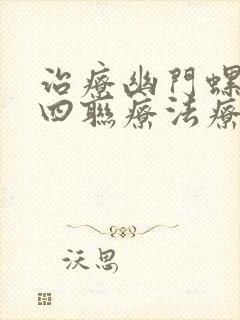 治療幽門螺
四聯療法療
沃思